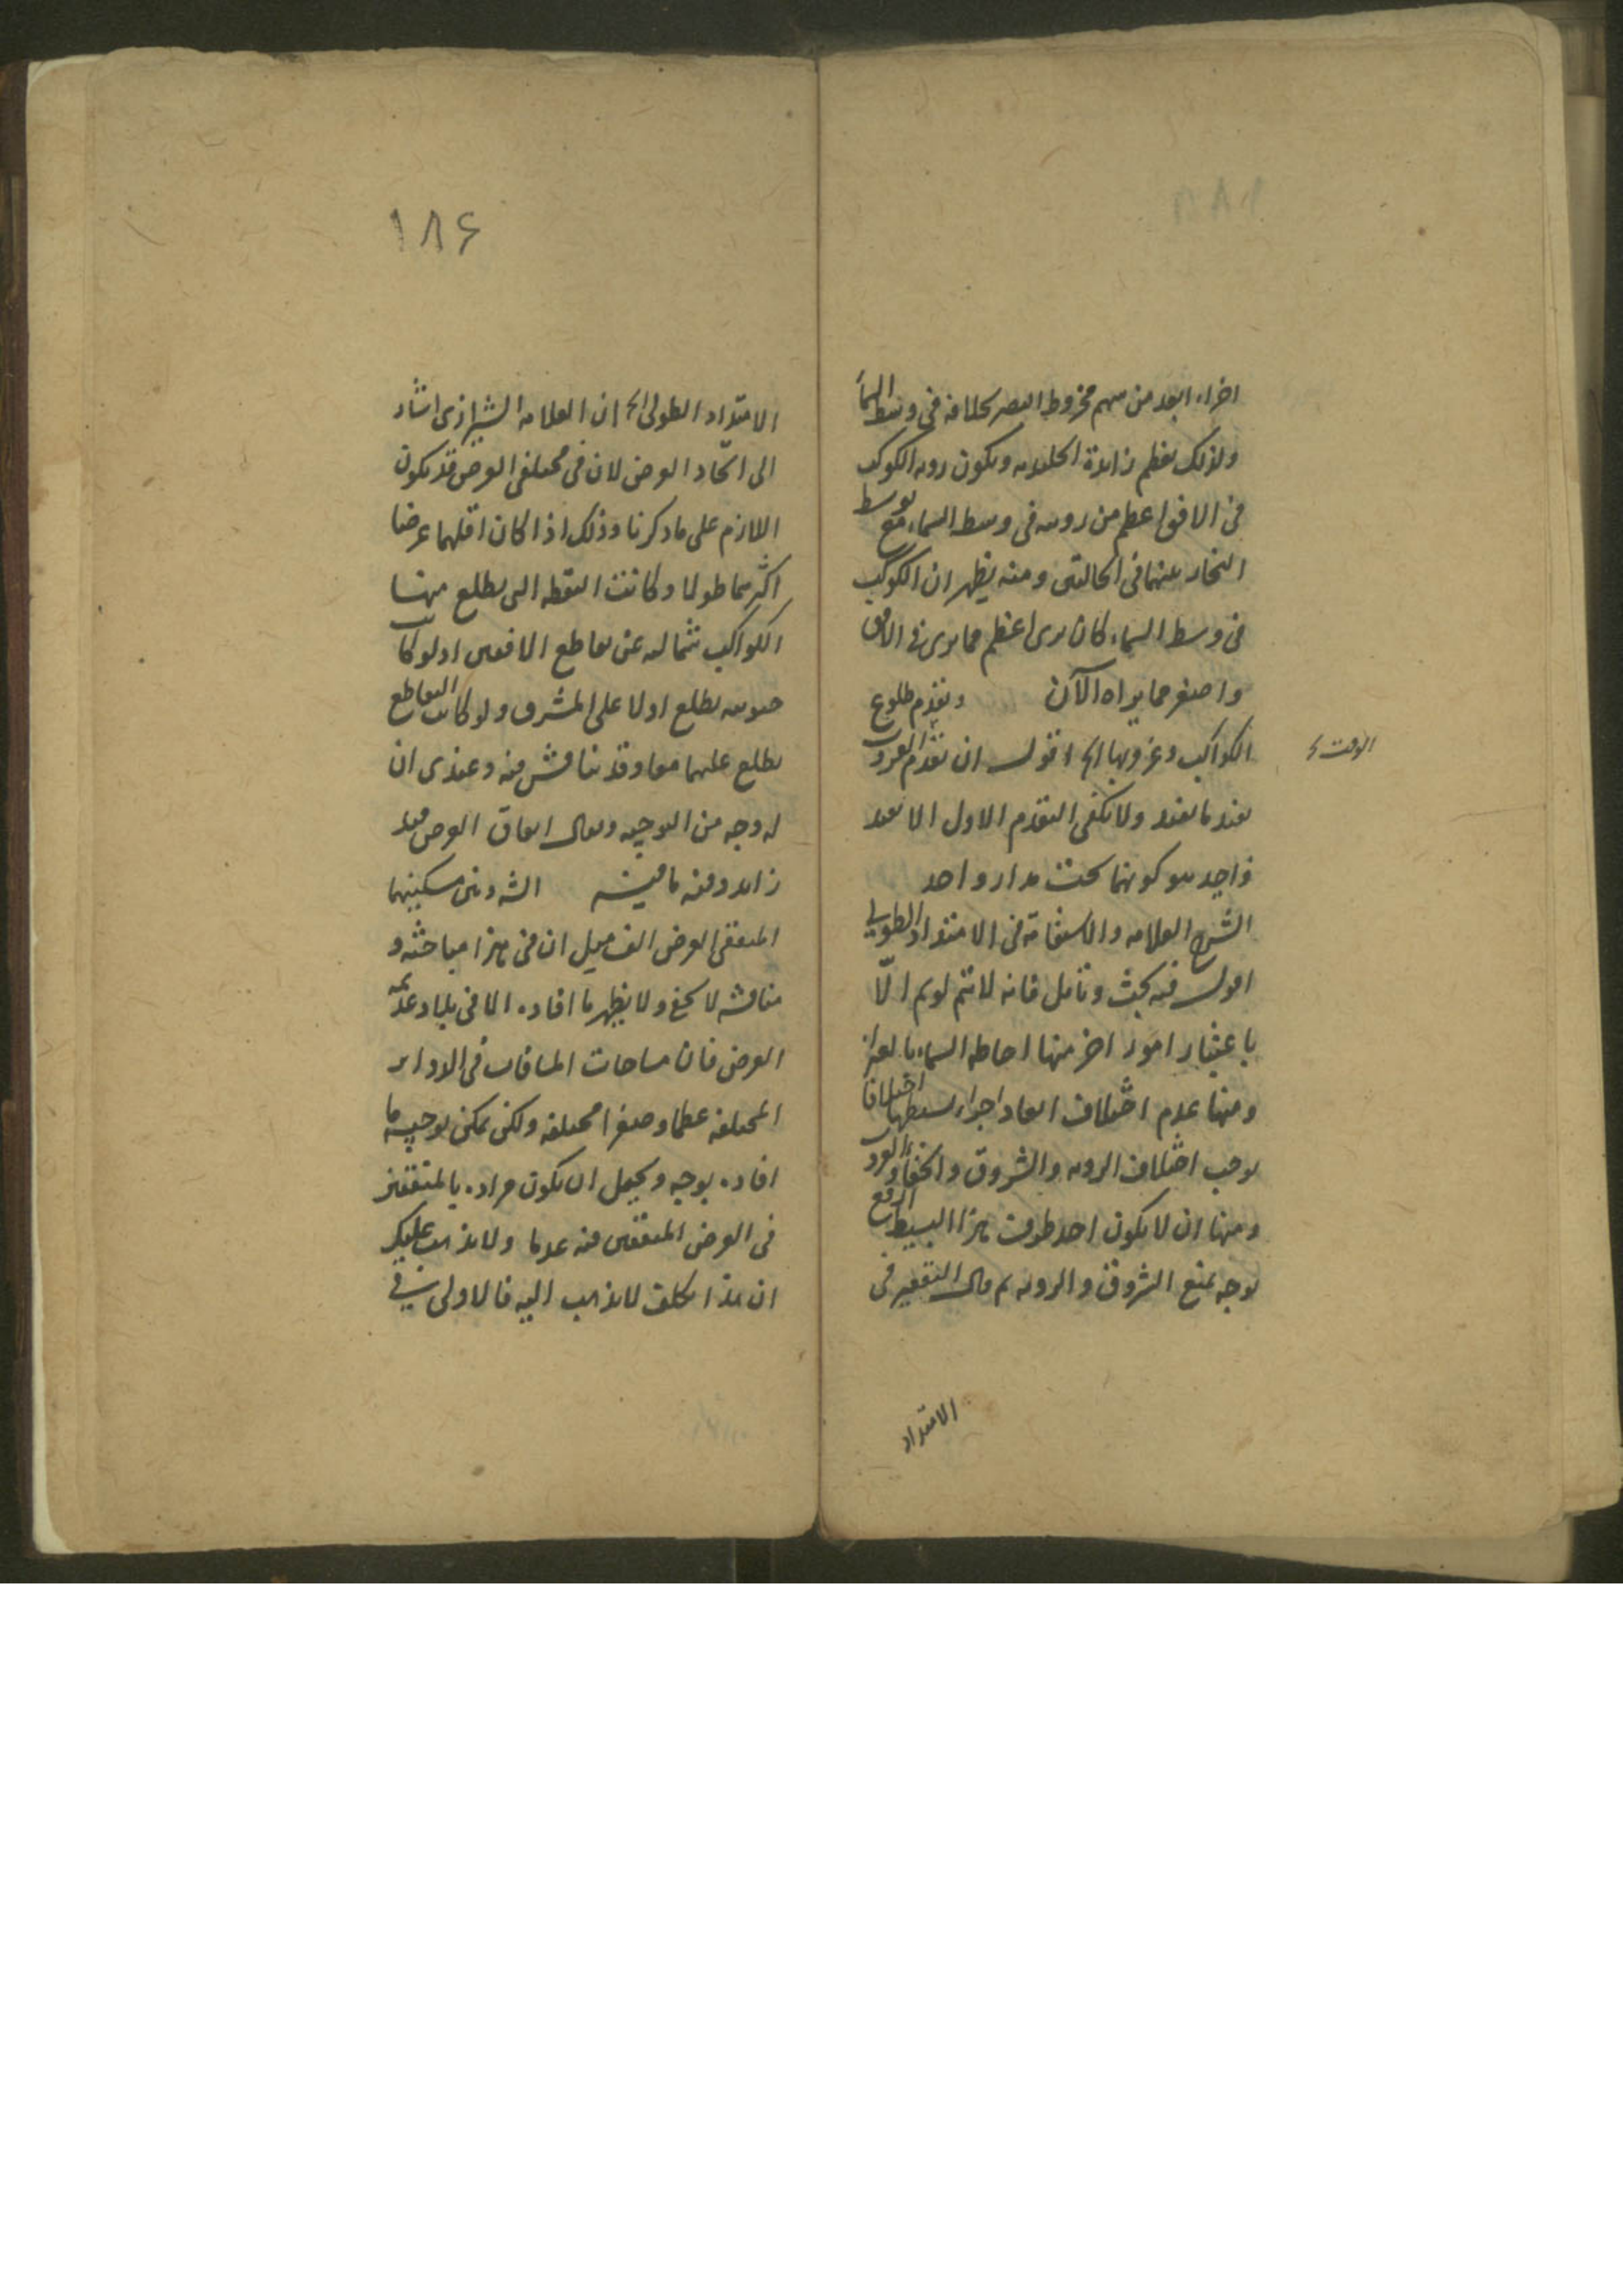 اخراء ابعد من سهم مخروط البصر بخلافه فى وسط السماء
ولذلك يعظم زاوية الجليدية ويكون روية الكوكب
فى الافق اعظم من رويته فى وسط السماء مع توسط
البخار بينهما فى الحالتين ومنه يظهر ان الكوكب
فى وسط السماء كان يرى اعظم مما يرى فى الافق
واصغر مما يراه الآن ويقدم طلوع
الكواكب وغروبها الخ اقول ان تقدم الغروب
يفيد ما يفيد ولا يكفى التقدم الاول الا بعد
هو كونهما تحت مدار واحد
الشرح العلامه والاستقامة فى الامتداد الطولى
اقول فيه بحث وتامل فانه لا يتم لويم الّا
باعتبار امور اخر منها احاطه السماء بالهواء
ومنها عدم اختلاف ابعاد اجزاء بسيطها اختلافا
يوجب اختلاف الرويه والشروق والخفاء
ومنها ان لا يكون احد طرفى هذا البسيط
بوجه يمنع الشروق والرويه ثم قال التقعير فى
الوقت
الامتداد
١٨۶
الامتداد الطولى الخ ان العلامه الشيرازى اشار
الى اتحاد العرض لان فى مختلفى العرض قد يكون
اللازم على ما ذكرنا وذلك اذا كان اقلهما عرضا
اكثرهما طولا وكانت النقطه التى يطلع منها
الكواكب شماليه عن تقاطع الافقين اذ لو كانت
جنوبيه يطلع اولا على المشرق ولو كانت التقاطع
يطلع عليهما معا وقد يناقش فيه وعندى ان
له وجه من التوجيه ويقال اتفاق العرض قيد
زايد وفيه ما فيه الشه وبين مسكنيهما
المتفقى العرض الف ميل ان فى هذا مباحثه و
مناقشه لا يخفى ولا يظهر ما افاده الا فى بلاد عديمه
العرض فان مساحات المسافات فى الدواير
المختلفه عظما وصغرا مختلفه ولكن يمكن توجيه ما
افاده بوجه ويجعل ان يكون مراده بالمتفقين
فى العرض المتفقين فيه عدما ولا يذهب عليك
ان هذا تكلف لا يذهب اليه فالاولى